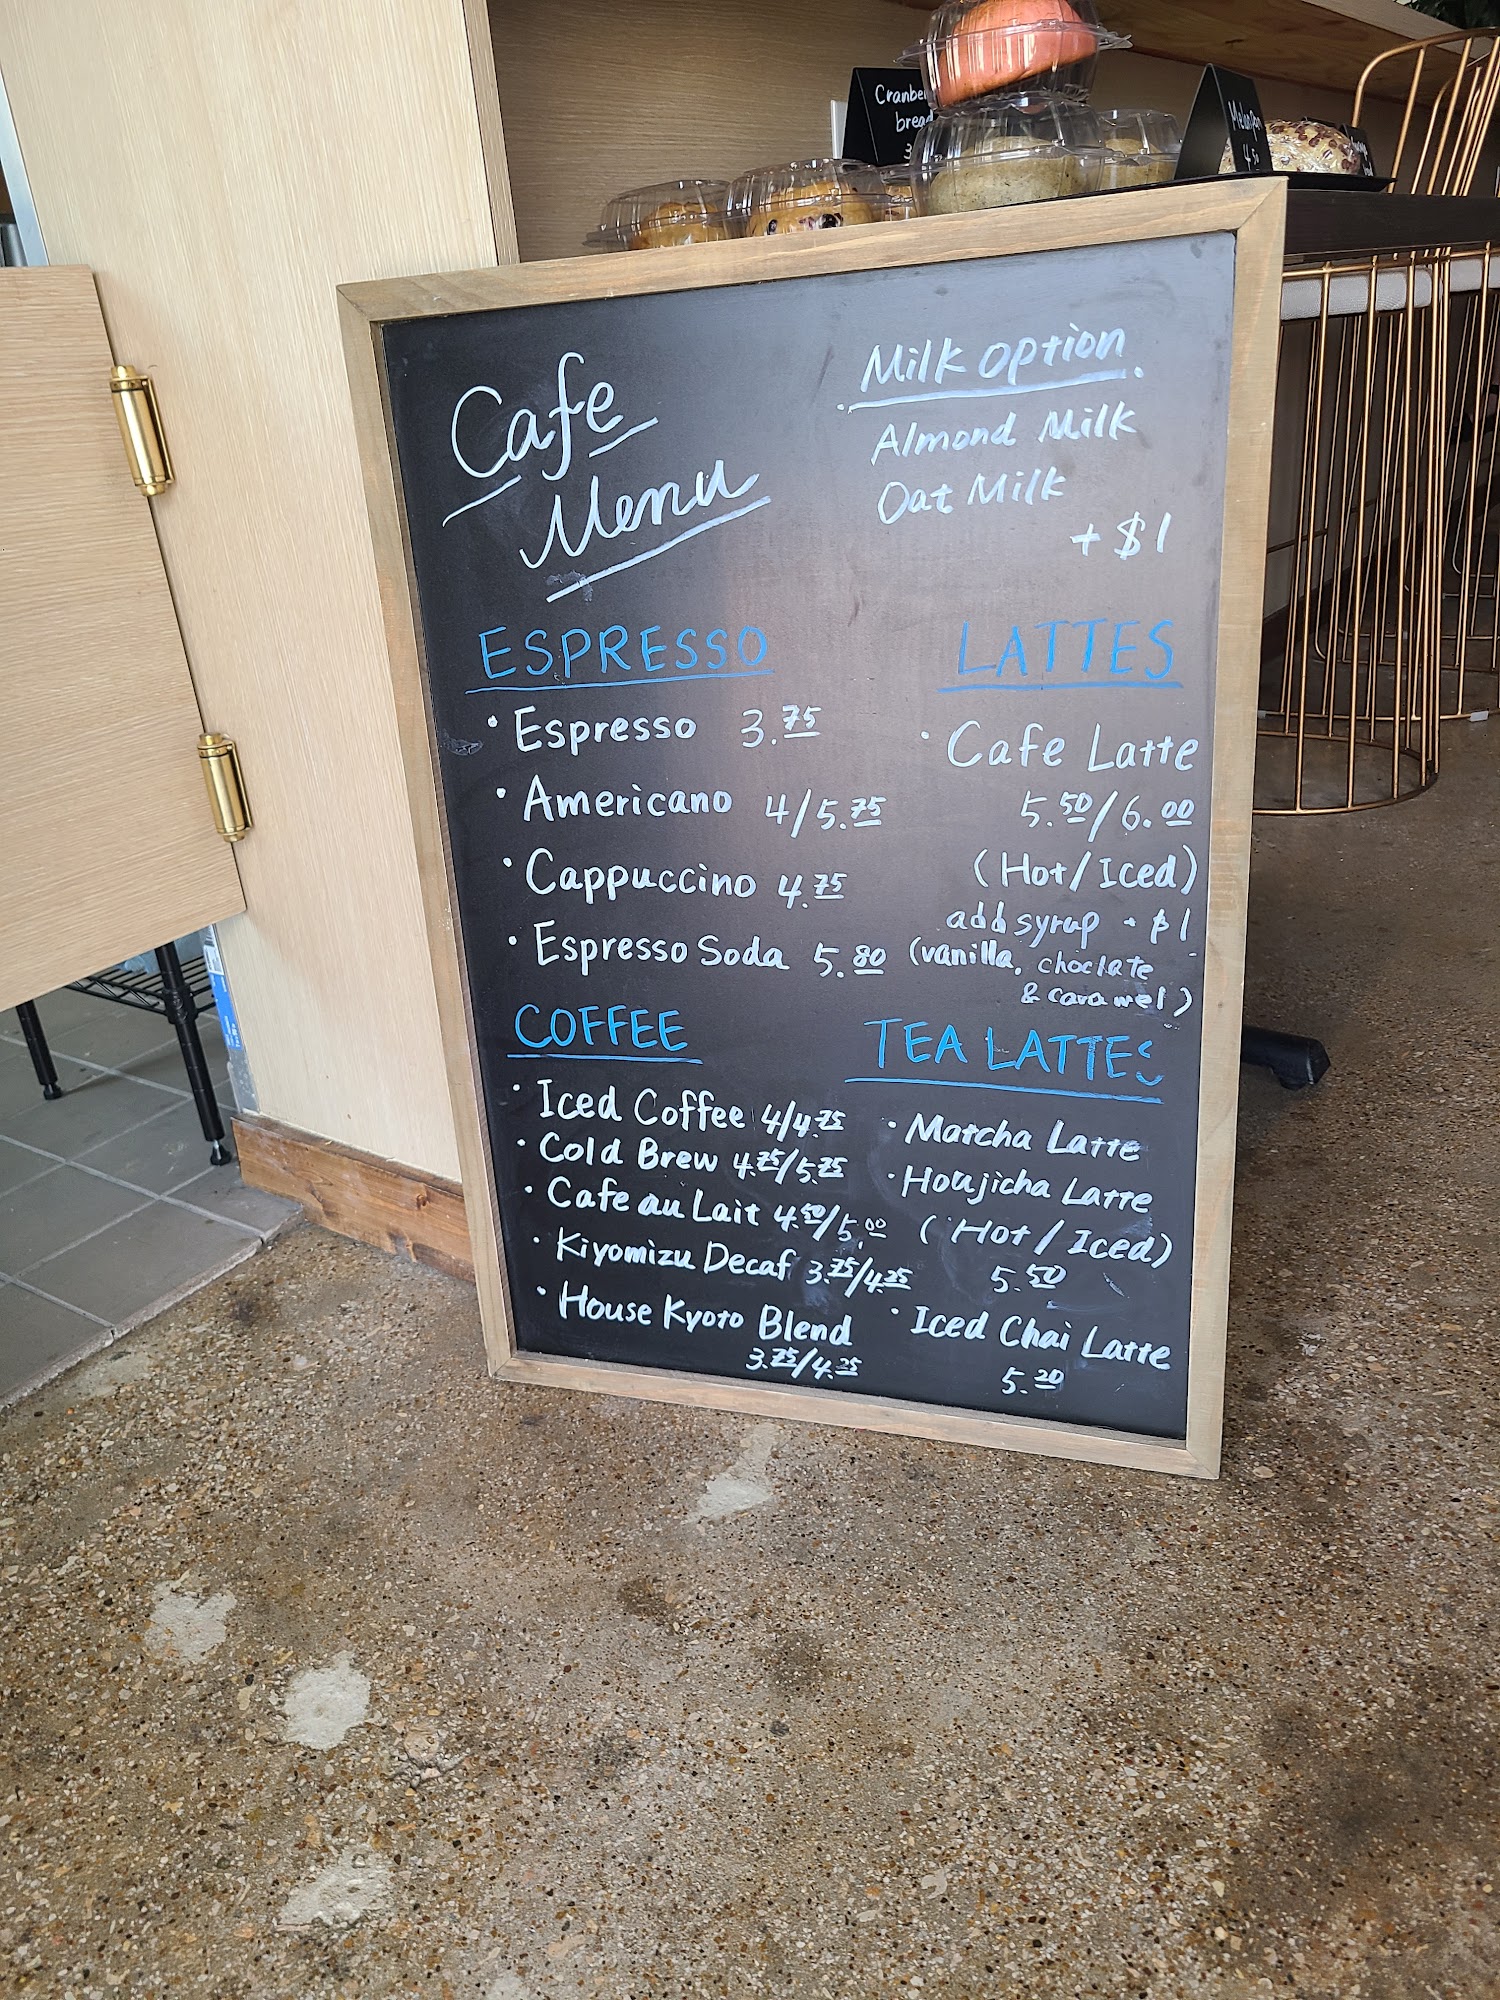 Cranbe
bread
Melonpan
4.50
Cafe
Menu
Milk option
Almond Milk
Oat Milk
+ $1
ESPRESSO
• Espresso 3.75
• Americano 4/5.75
• Cappuccino 4.75
• Espresso Soda 5.80
LATTES
• Cafe Latte
5.50/6.00
(Hot/Iced)
add syrup - $1
(vanilla, choclate
& caramel)
COFFEE
• Iced Coffee 4/4.75
• Cold Brew 4.75/5.75
• Cafe au Lait 4.50/5.00
• Kiyomizu Decaf 3.75/4.25
• House Kyoto Blend
3.75/4.25
TEA LATTES
• Matcha Latte
• Houjicha Latte
(Hot/Iced)
5.50
• Iced Chai Latte
5.20